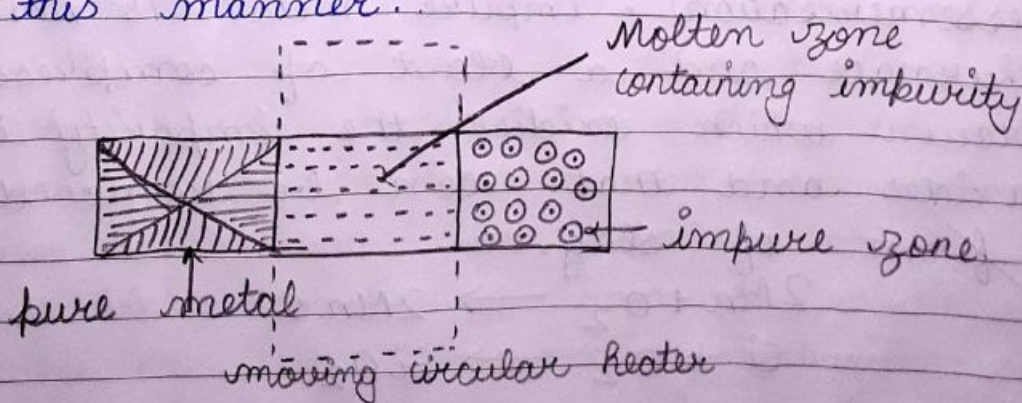 this manner.
Molten zone
containing impurity
impure zone
pure metal
moving circular heater